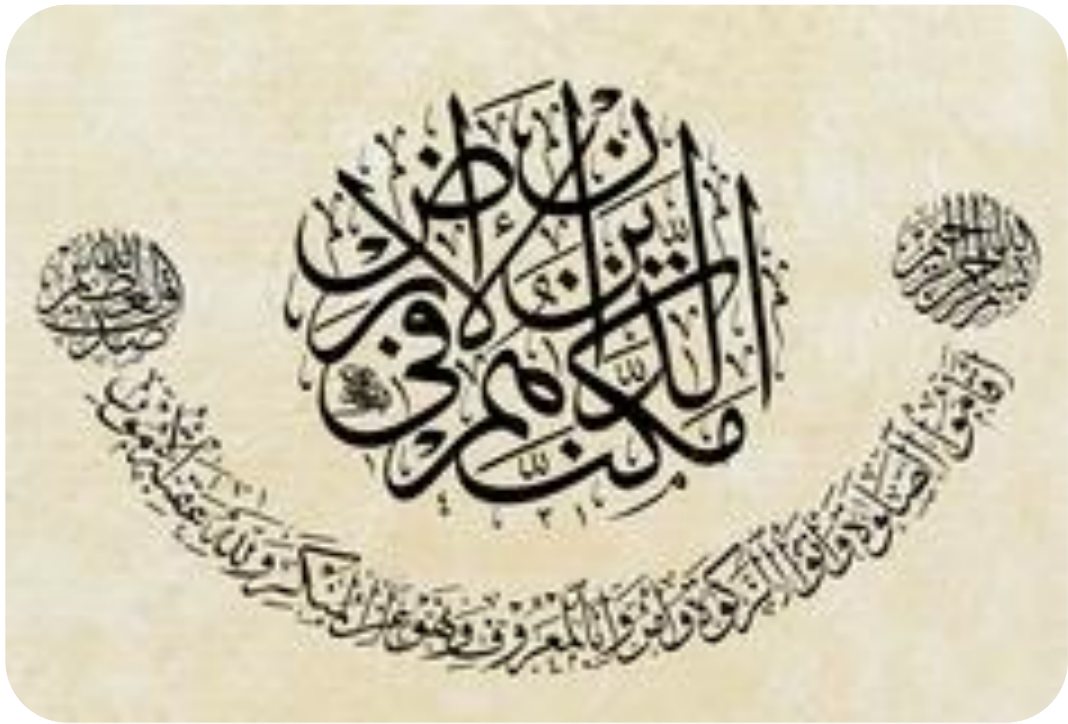 بسم الله الرحمن الرحيم
الذين إن مكنهم في الأرض
أقاموا الصلوة وآتوا الزكوة وأمروا بالمعروف ونهوا عن المنكر ولله عقبة الأمور
صدق الله العظيم